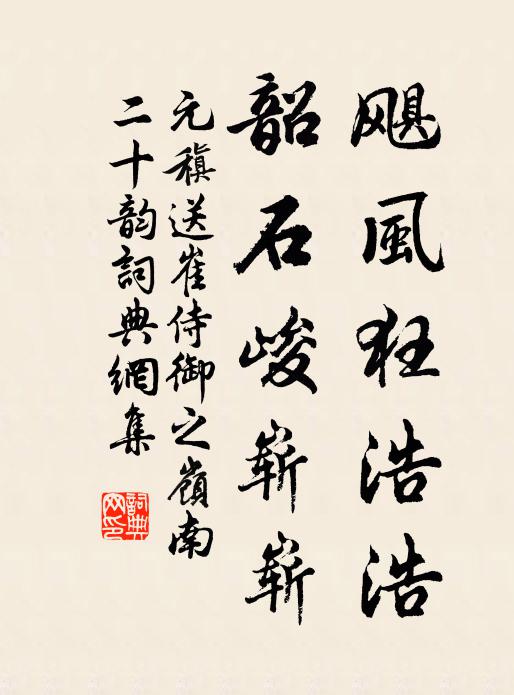 飓風狂浩浩
韶石峻嶄嶄
元稹送崔侍御之嶺南
二十韵詞典網集
詞典网印